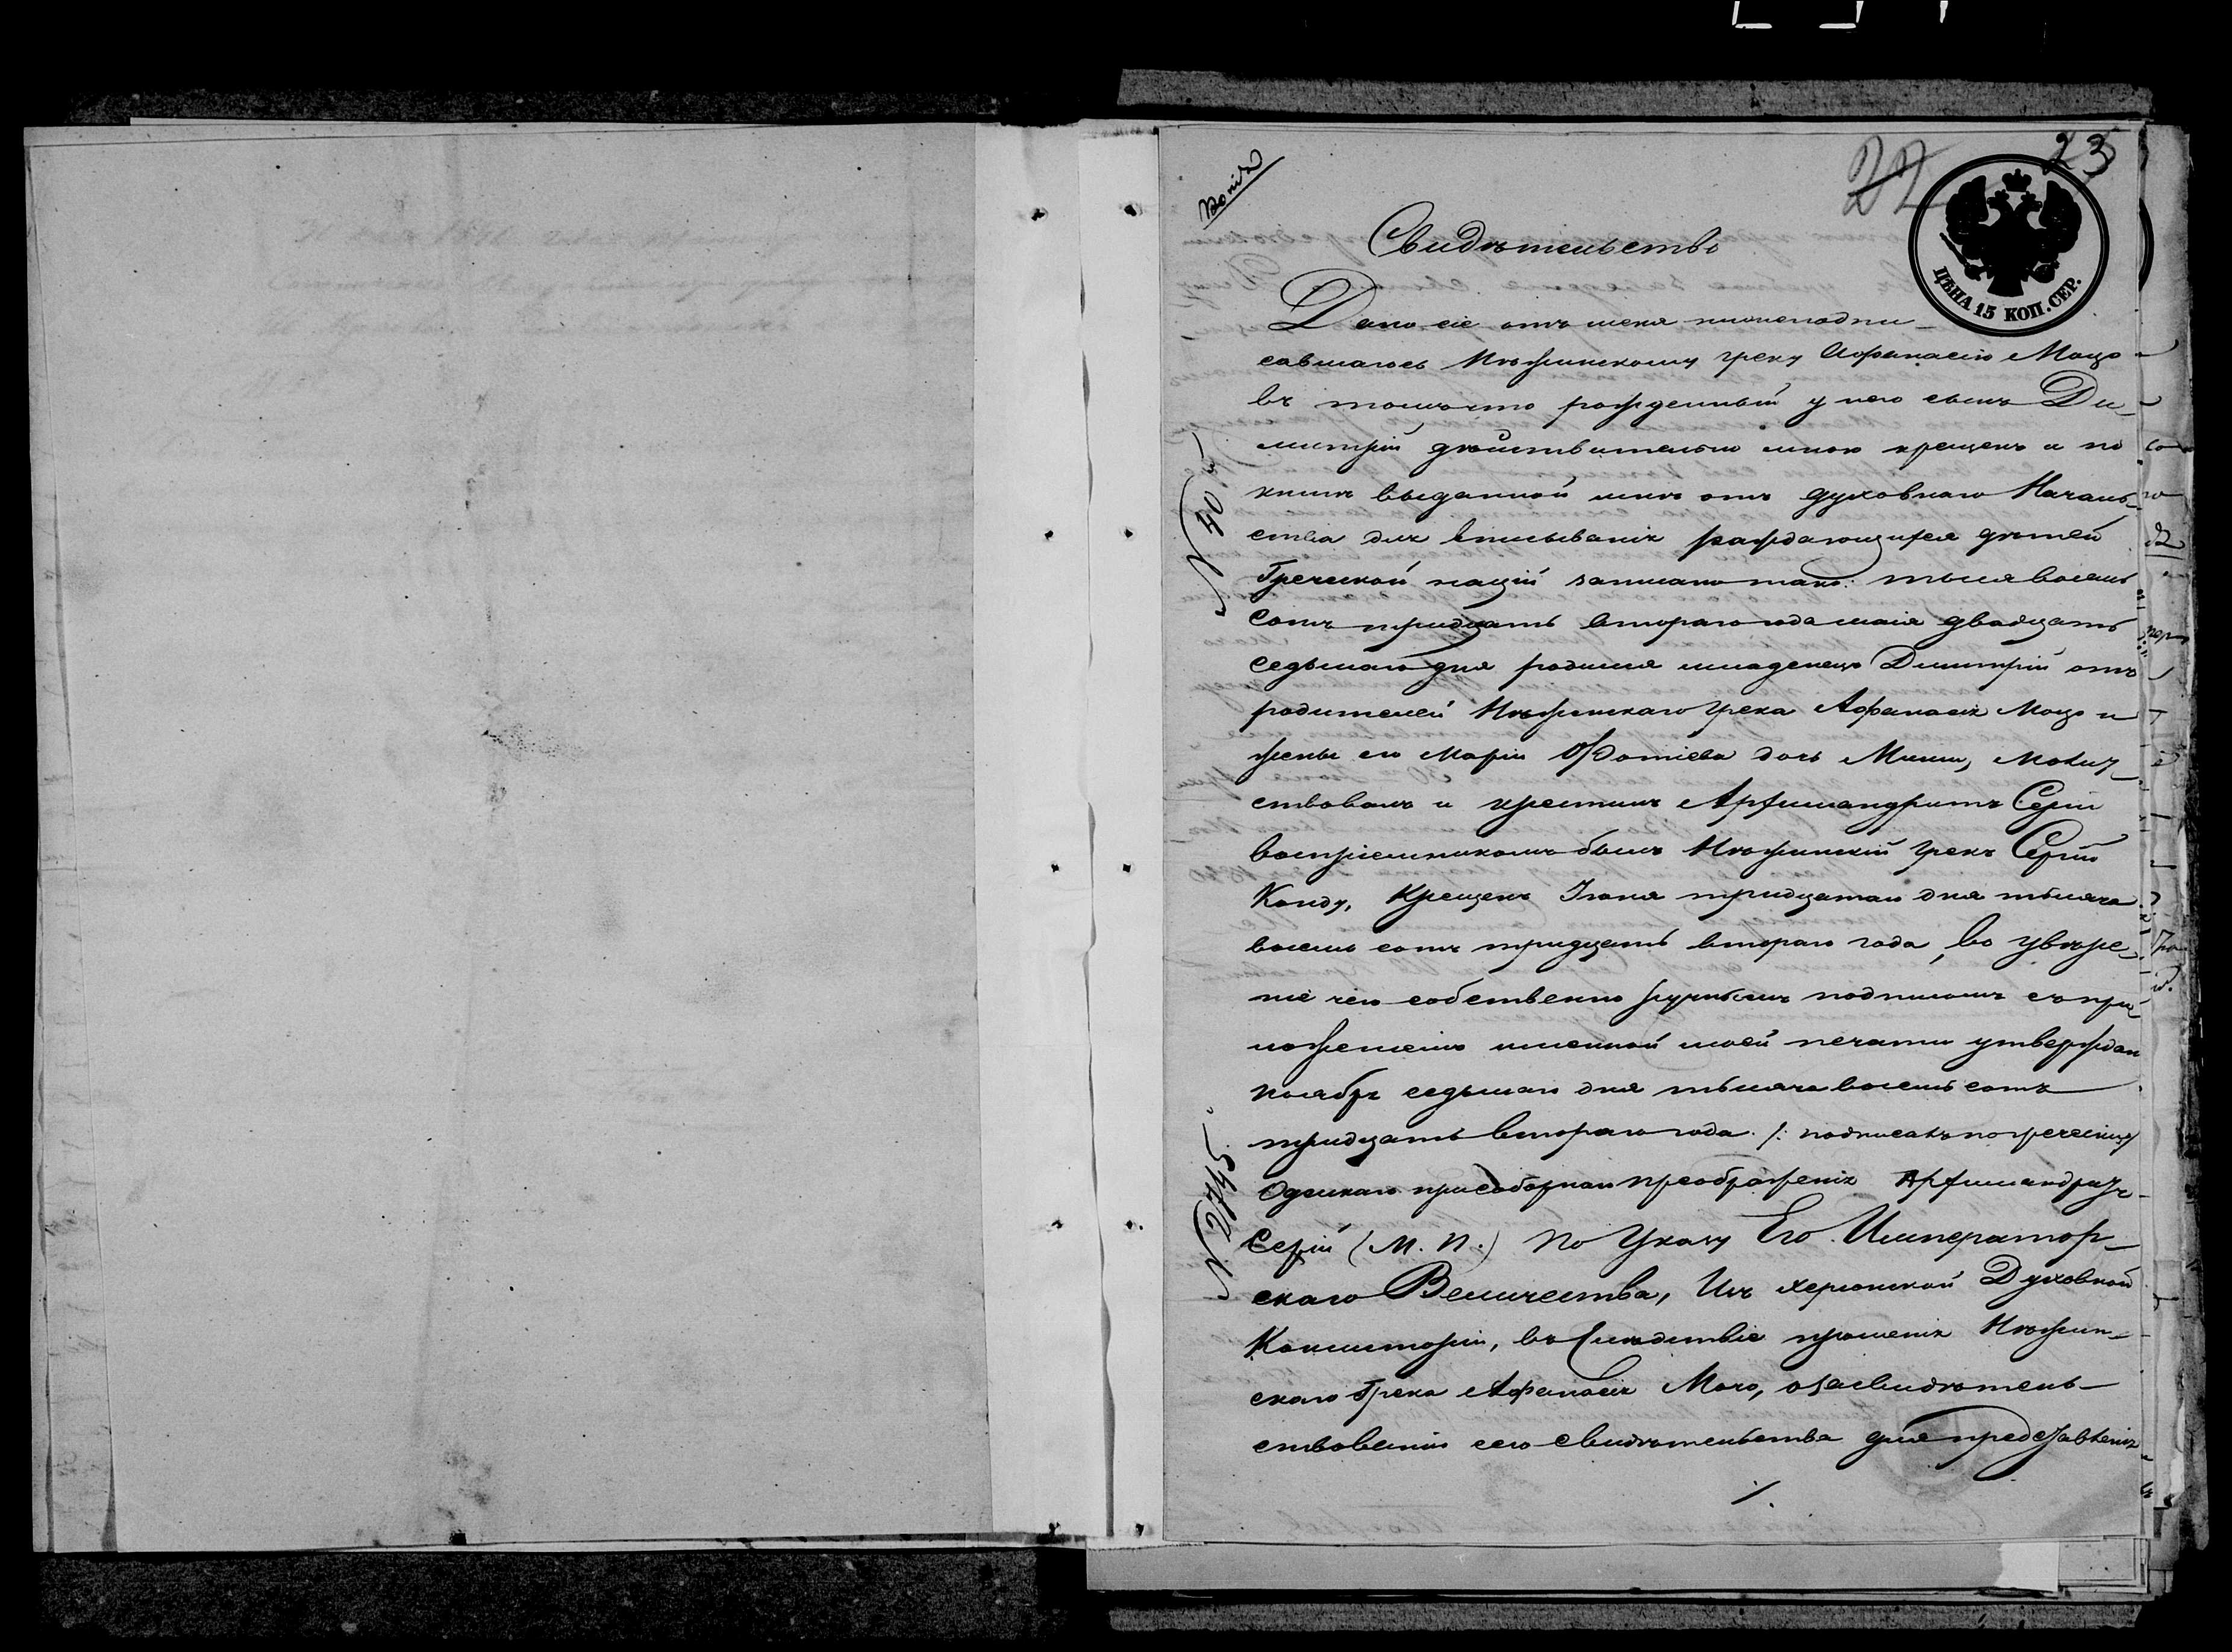 Копія
22 23
ЦѢНА 15 КОП. СЕР.
Свидѣтельство
Дано сіе отъ меня нижеподпи-
савшагось Нѣжинскому греку Афанасію Мацо
въ томъ что рожденный у него сынъ Ди-
митрій дѣйствительно мною крещенъ и по
книгѣ выданной мнѣ отъ духовнаго Началь-
ства для вписыванія раждающихся дѣтей
Греческой націи записано тако: тысяча восемь
сотъ тридцать втораго года маія двадцать
седьмаго дня родился младенецъ Димитрій отъ
родителей Нѣжинскаго грека Афанасія Мацо и
жены его Маріи Фотіева дочь Мини, молит-
ствовалъ и крестилъ Архимандритъ Сергій
воспріемникомъ былъ Нѣжинскій грекъ Сергій
Конду, Крещенъ Іюня тридцатаго дня тысяча
восемь сотъ тридцать втораго года, во увѣре-
ніе чего собственно ручнымъ подписомъ съ при-
ложеніемъ именной моей печати утверждаю
ноября седьмаго дня тысяча восемь сотъ
тридцать втораго года. /: подписалъ по гречески:/
Одесскаго присоборнаго преображенія Архимандритъ
Сергій (М. П.) По Указу Его Император-
скаго Величества, Изъ херсонской Духовной
Консисторіи, въ слѣдствіе прошенія Нѣжин-
скаго Грека Афанасія Мацо, о засвидѣтель-
ствованіи сего свидѣтельства для представленія
/.
N 2745